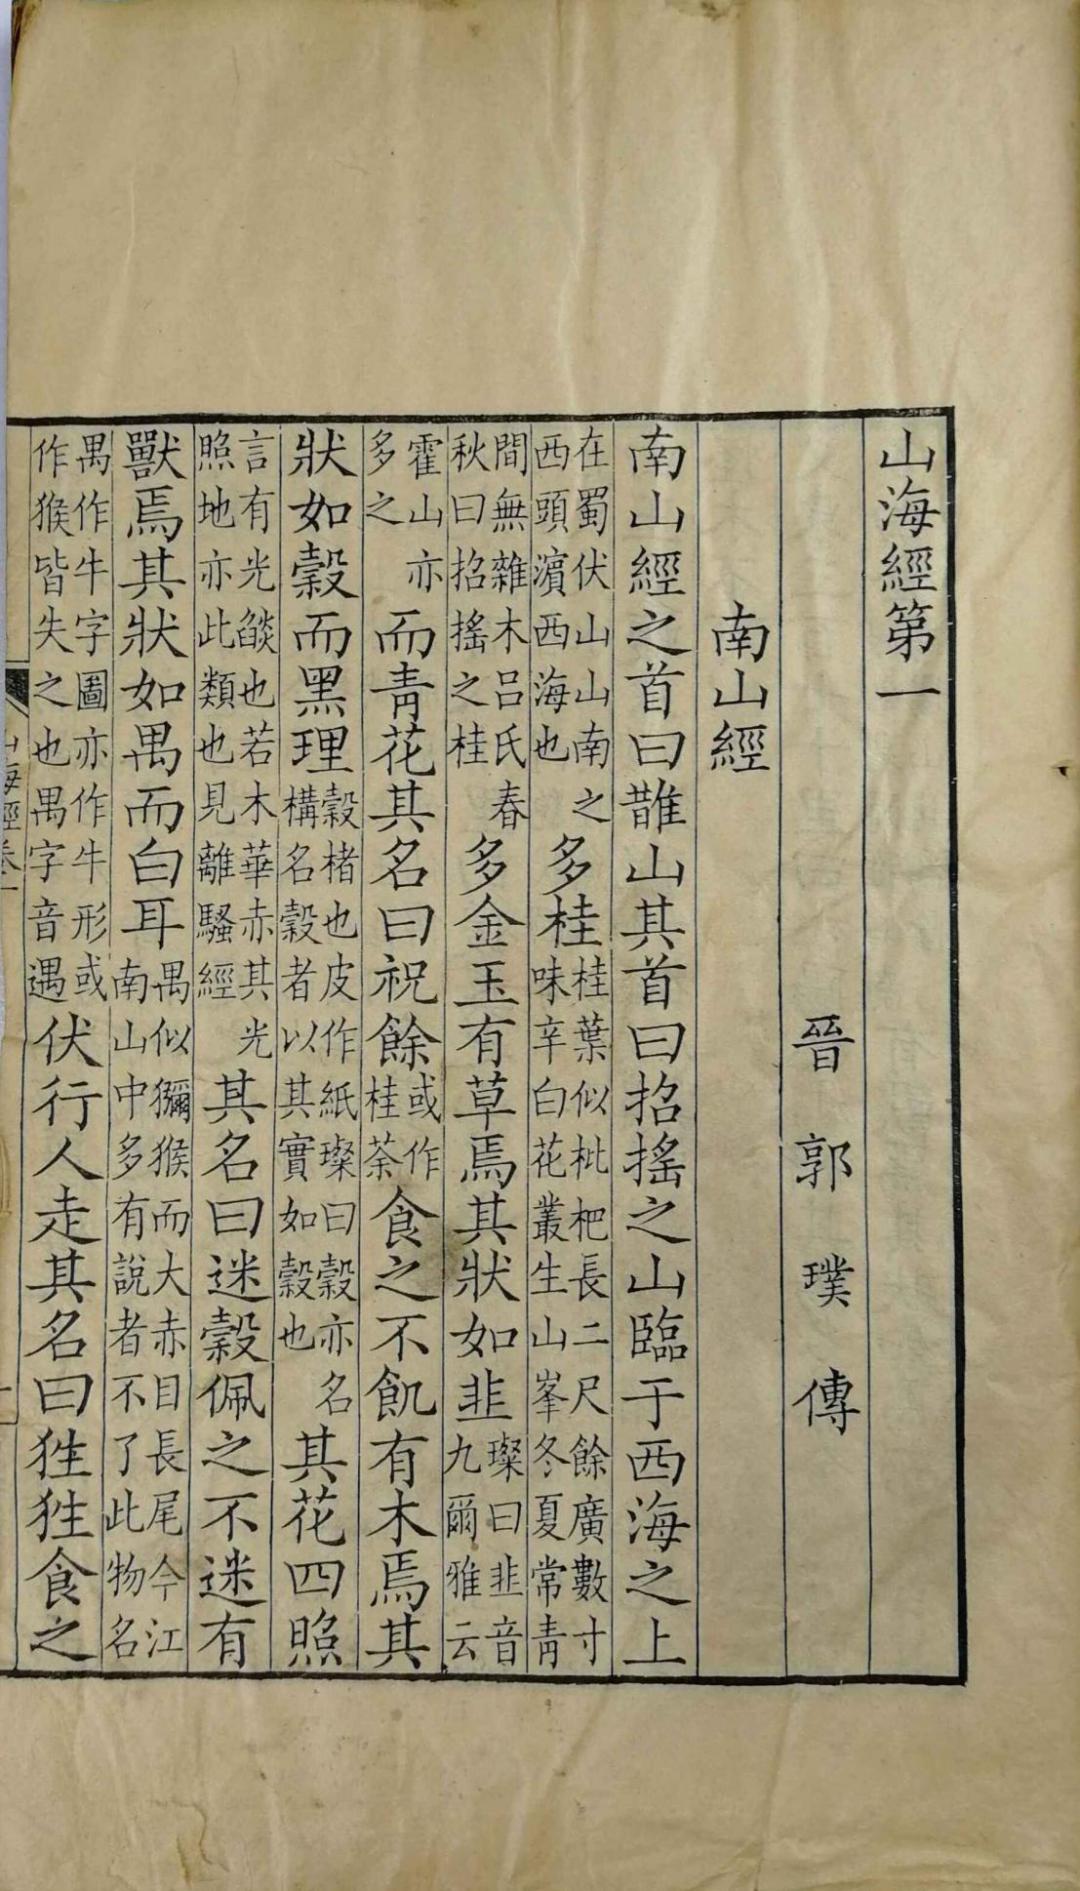 山海經第一
晉郭璞傳
南山經
南山經之首曰䧿山其首曰招搖之山臨于西海之上
在蜀伏山山南之西頭濵西海也多桂桂葉似枇杷長二尺餘廣數寸味辛白花叢生山峯冬夏常青
間無雜木呂氏春秋曰招搖之桂多金玉有草焉其狀如韭璨曰韭音九爾雅云
霍山亦多之而青花其名曰祝餘或作桂荼食之不飢有木焉其
狀如榖而黑理榖楮也皮作紙璨曰榖亦名構名榖者以其實如榖也其花四照
言有光燄也若木華赤其光照地亦此類也見離騷經其名曰迷榖佩之不迷有
獸焉其狀如禺而白耳禺似獼猴而大赤目長尾今江南山中多有說者不了此物名
禺作牛字圖亦作牛形或作猴皆失之也禺字音遇伏行人走其名曰狌狌食之
山海經卷一